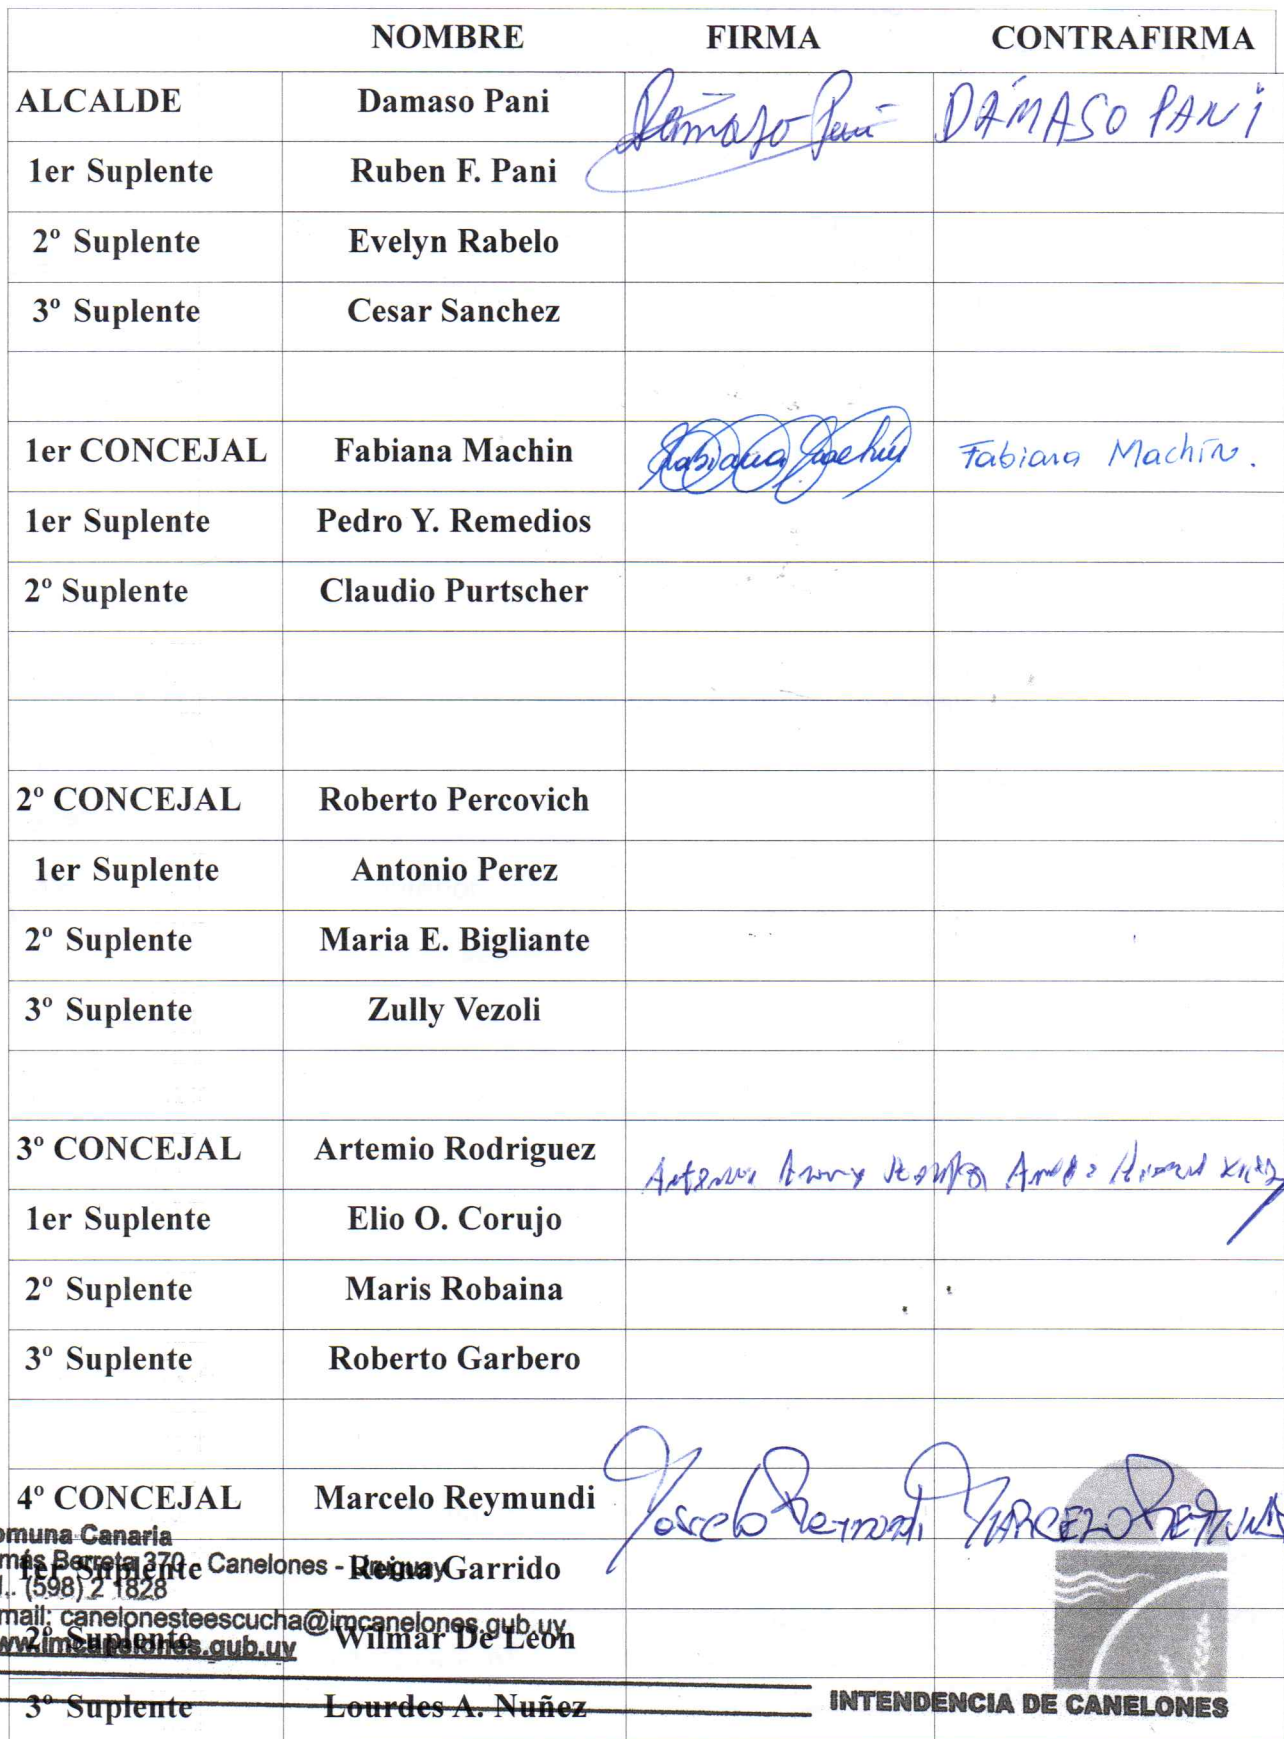 NOMBRE FIRMA CONTRAFIRMA
ALCALDE Damaso Pani Dámaso Pani DÁMASO PANI
1er Suplente Ruben F. Pani
2º Suplente Evelyn Rabelo
3º Suplente Cesar Sanchez
1er CONCEJAL Fabiana Machin Fabiana Machin Fabiana Machín.
1er Suplente Pedro Y. Remedios
2º Suplente Claudio Purtscher
2º CONCEJAL Roberto Percovich
1er Suplente Antonio Perez
2º Suplente Maria E. Bigliante
3º Suplente Zully Vezoli
3º CONCEJAL Artemio Rodriguez
1er Suplente Elio O. Corujo
2º Suplente Maris Robaina
3º Suplente Roberto Garbero
4º CONCEJAL Marcelo Reymundi Marcelo Reymundi MARCELO REYMUNDI
omuna Canaria
más Berreta 370 - Canelones - Uruguay
1er Suplente Reina Garrido
l.. (598) 2 1828
mail: canelonesteescucha@imcanelones.gub.uy
2º Suplente Wilmar De León
ww.imcanelones.gub.uy
3º Suplente Lourdes A. Nuñez
INTENDENCIA DE CANELONES